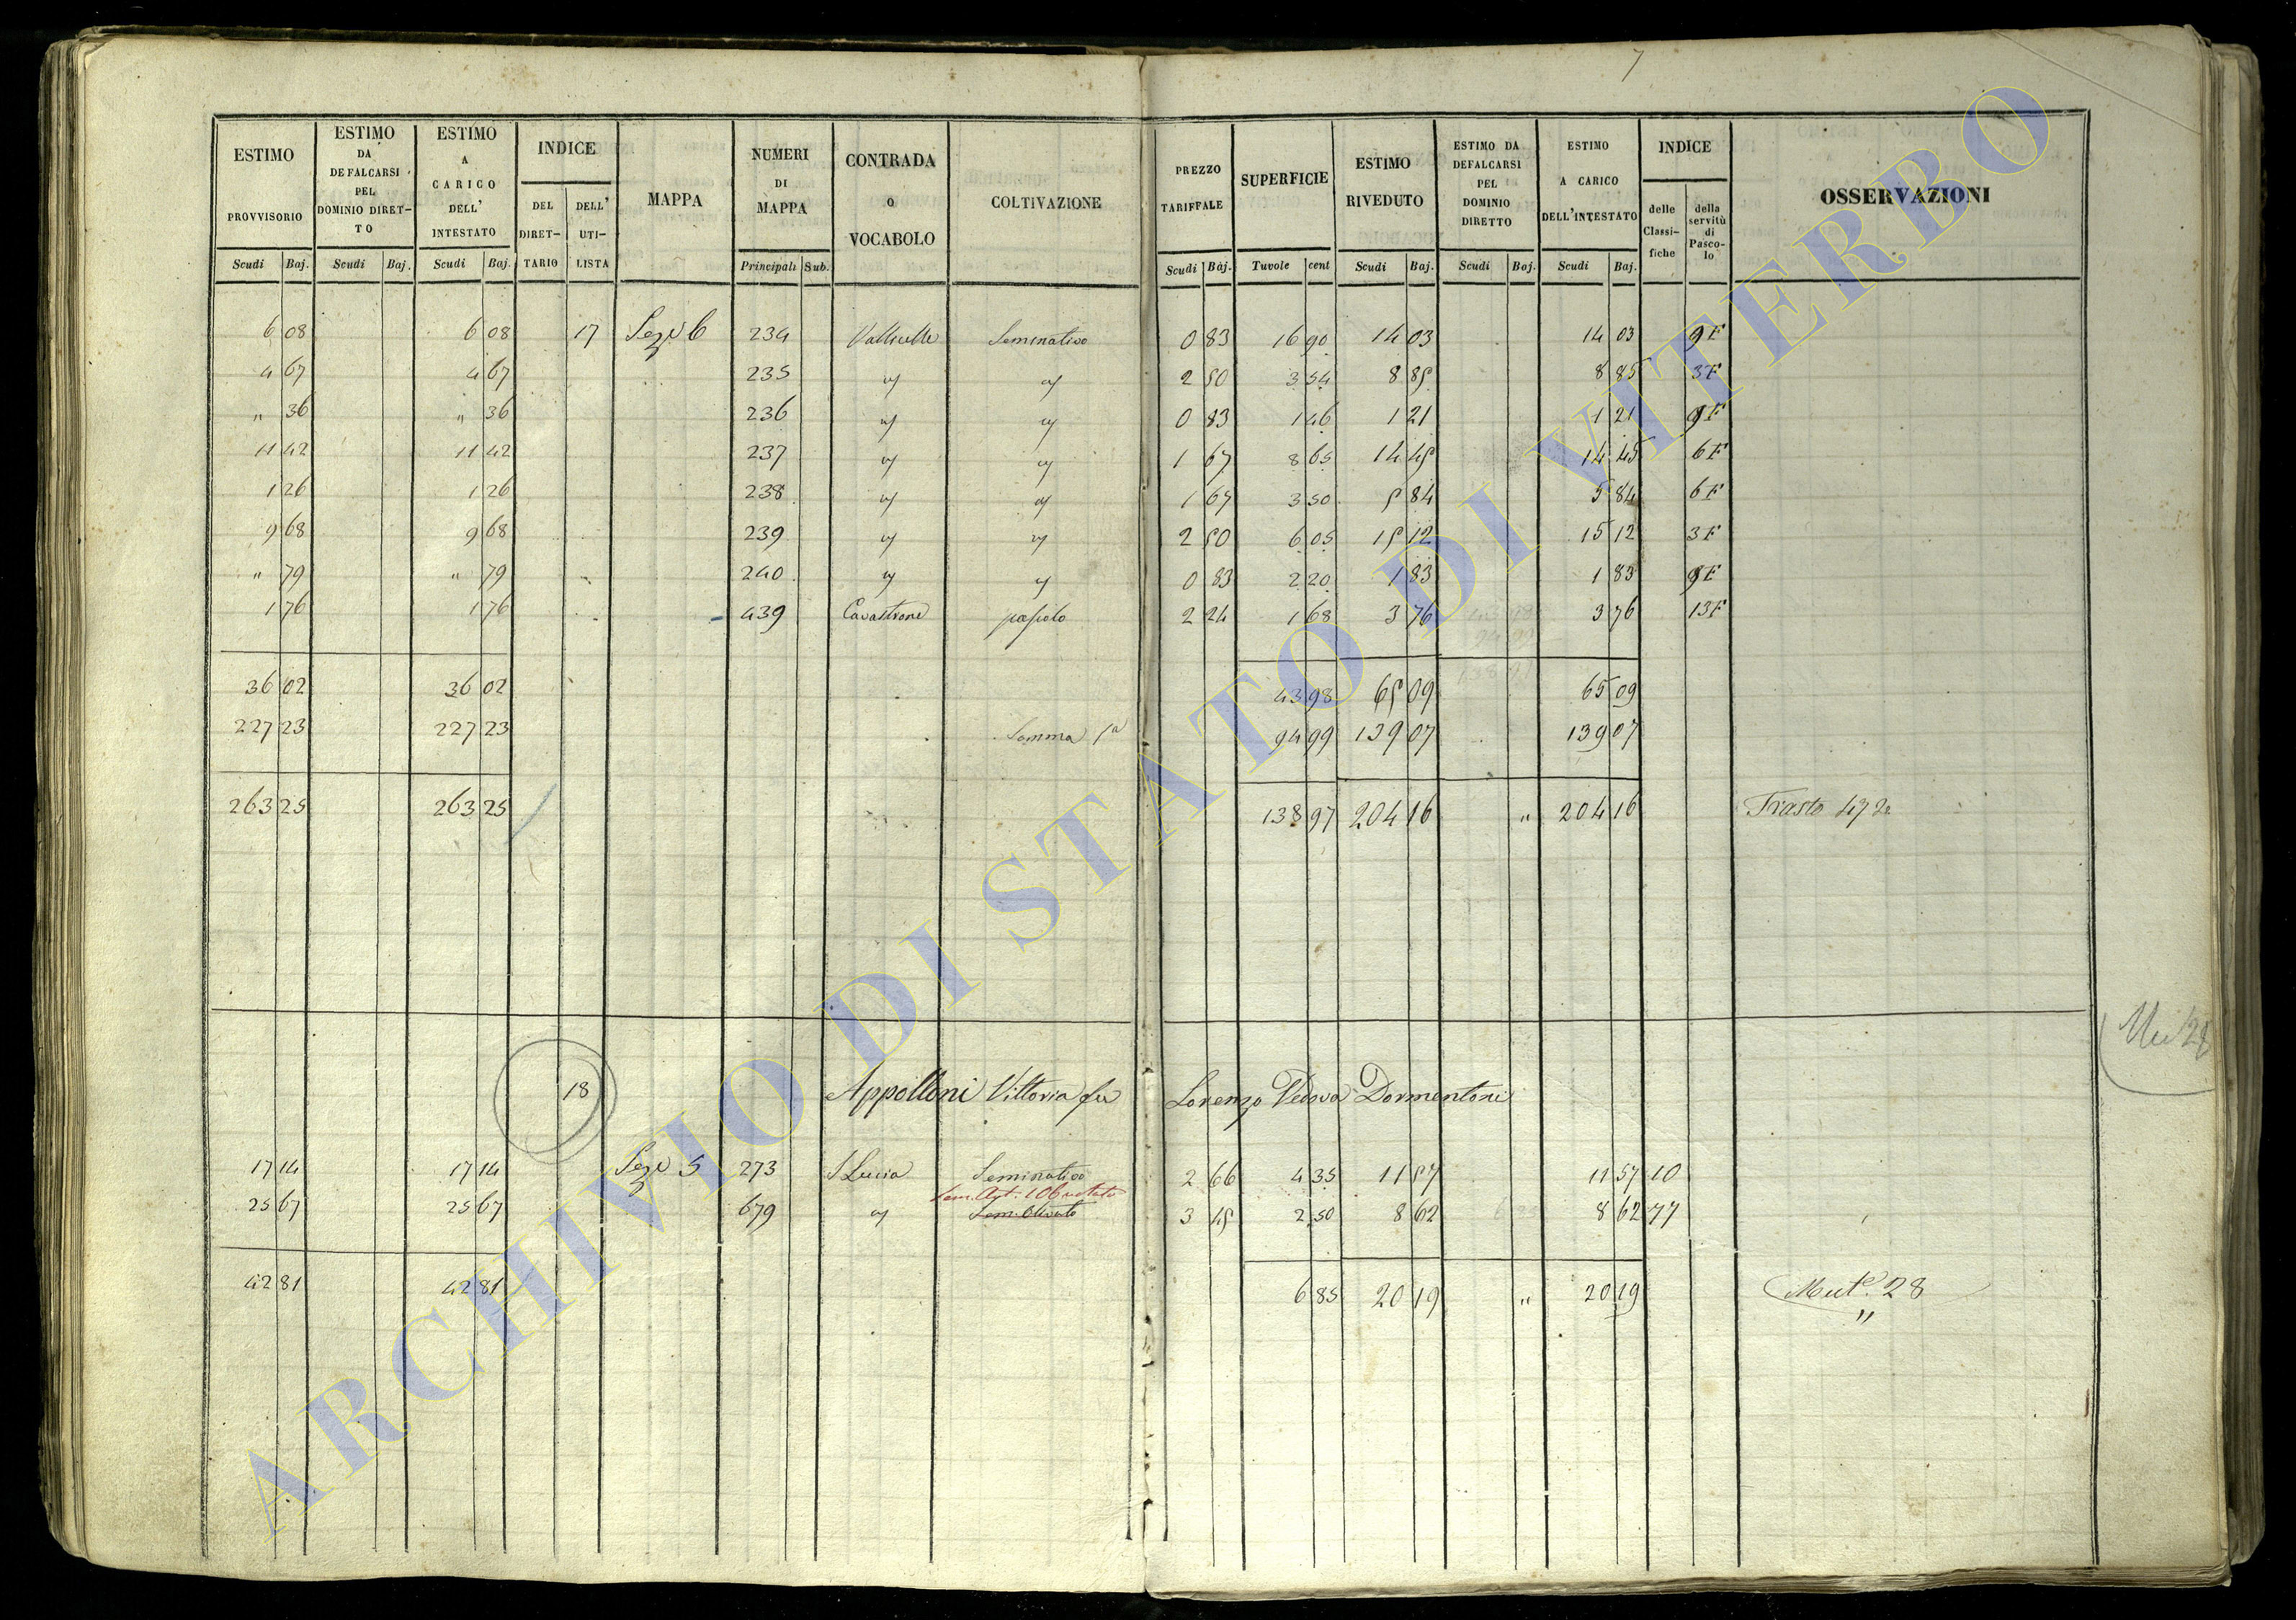 7
ESTIMO PROVVISORIO Scudi Baj.
ESTIMO DA DEFALCARSI PEL DOMINIO DIRET-TO Scudi Baj.
ESTIMO A CARICO DELL' INTESTATO Scudi Baj.
INDICE DEL DIRET-TARIO DELL' UTI-LISTA
MAPPA
NUMERI DI MAPPA Principali Sub.
CONTRADA o VOCABOLO
COLTIVAZIONE
PREZZO TARIFFALE Scudi Baj.
SUPERFICIE Tavole cent
ESTIMO RIVEDUTO Scudi Baj.
ESTIMO DA DEFALCARSI PEL DOMINIO DIRETTO Scudi Baj.
ESTIMO A CARICO DELL'INTESTATO Scudi Baj.
INDICE delle Classi-fiche della servitù di Pasco-lo
OSSERVAZIONI
6 08 6 08 17 Sezе 6 234 Vallicelle Seminativo 0 83 16 90 14 03 14 03 9 F
4 67 4 67 235 2 50 3 54 8 85 8 85 3 F
" 36 " 36 236 0 83 1 46 1 21 1 21 9 F
11 42 11 42 237 1 67 8 65 14 45 14 45 6 F
1 26 1 26 238 1 67 3 50 5 84 5 84 6 F
9 68 9 68 239 2 50 6 05 15 12 15 12 3 F
" 79 " 79 240 0 83 2 20 1 83 1 83 9 F
1 76 1 76 439 Cavastrone pascolo 2 24 1 68 3 76 3 76 13 F
36 02 36 02 43 98 65 09 65 09
227 23 227 23 Somma 94 99 139 07 139 07
263 25 263 25 138 97 204 16 " 204 16 Trasto 47
18 Appolloni Vittoria fu Lorenzo Vedova Dormentoni
17 14 17 14 5 273 S Lucia Seminativo 2 66 4 35 11 57 11 57 10
25 67 25 67 679 Sem. Olivato 3 45 2 50 8 62 8 62 77
42 81 42 81 6 85 20 19 " 20 19 Mut.e 28
"
ARCHIVIO DI STATO DI VITERBO